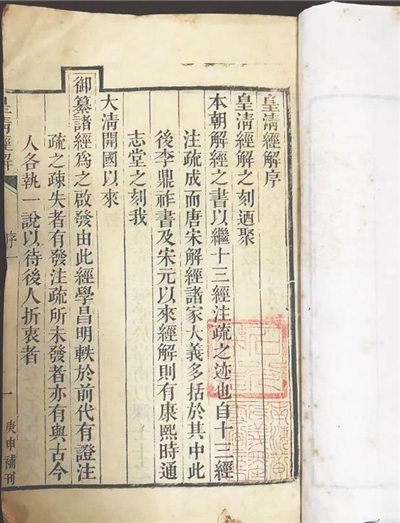 皇清經解序
皇清經解之刻迺聚
本朝解經之書以繼十三經注疏之迹也自十三經
注疏成而唐宋解經諸家大義多括於其中此
後李鼎祚書及宋元以來經解則有康熙時通
志堂之刻我
大清開國以來
御纂諸經爲之啟發由此經學昌明軼於前代有證注
疏之疎失者有發注疏所未發者亦有與古今
人各執一說以待後人折衷者
皇清經解
序
一
庚申補刊